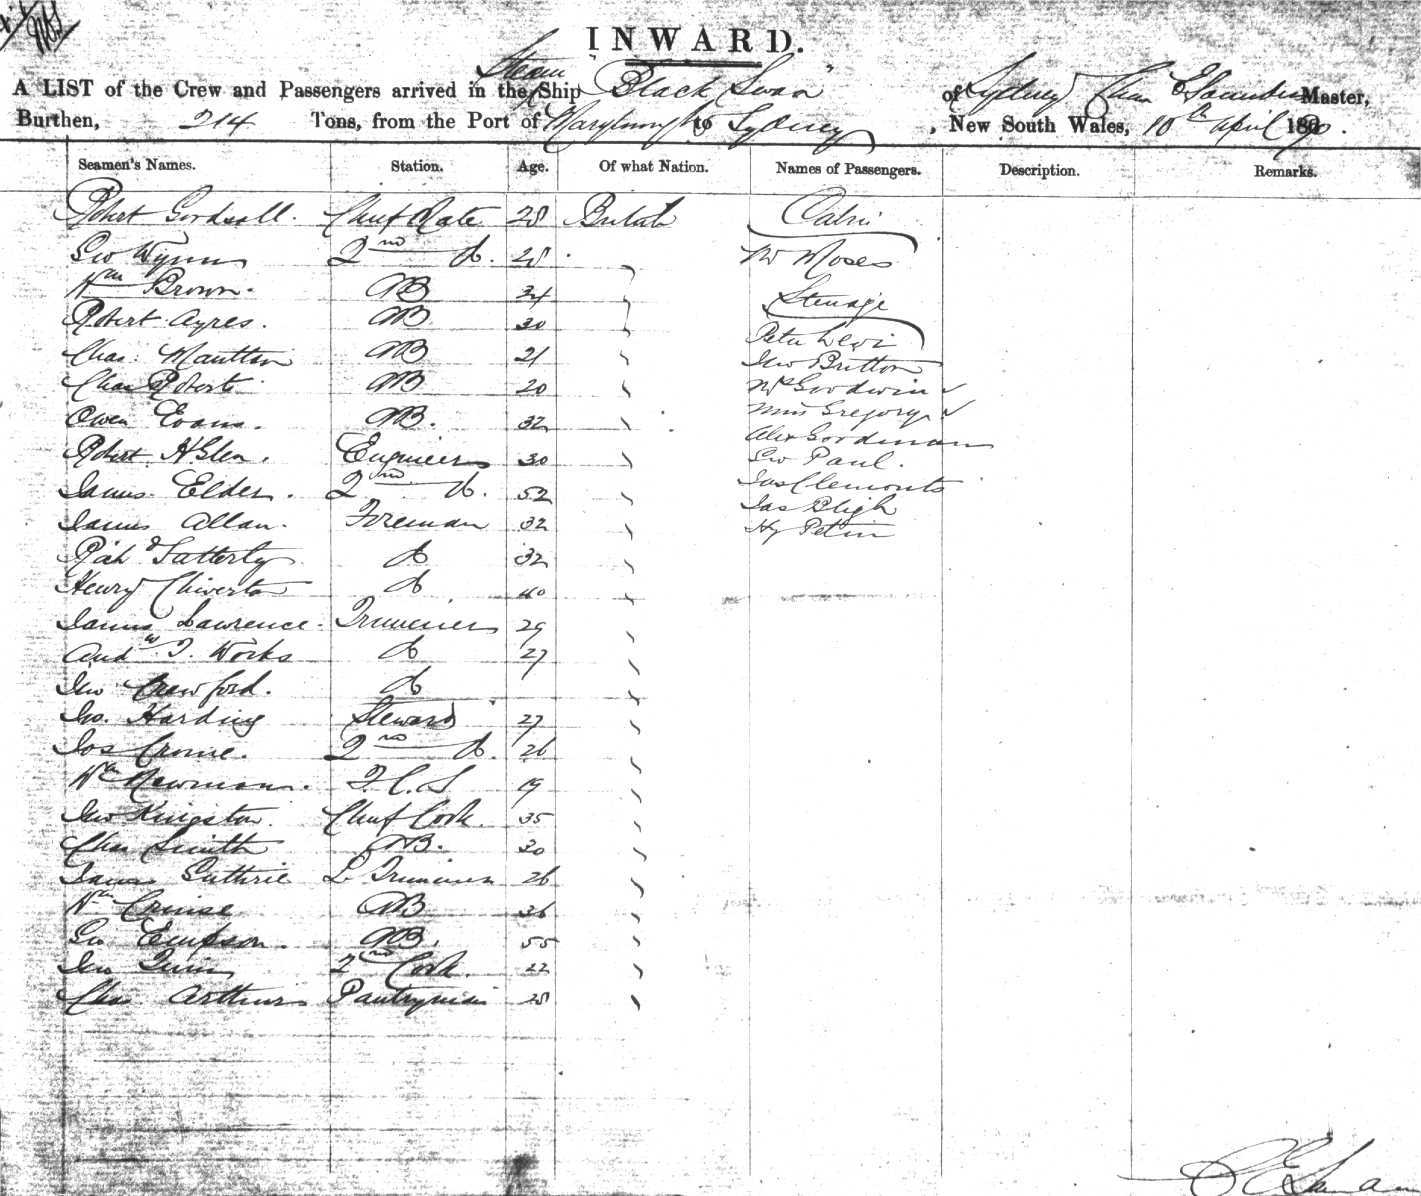 INWARD.
A LIST of the Crew and Passengers arrived in the Steam Ship "Black Swan" of Sydney Chas E Saunders Master,
Burthen, 214 Tons, from the Port of Maryborough to Sydney, New South Wales, 10th April 1870.
Seamen's Names. Station. Age. Of what Nation. Names of Passengers. Description. Remarks.
Robert Goodsall. Chief Mate 28 British Cabin
Geo Wynn 2nd do. 28 Mr Moses
Wm Brown. AB 34 Steerage
Robert Ayres. AB 30 Peter Levi
Chas. AB 21 Jno Britton
Chas Roberts AB 20 Mrs Goodwin
Owen Evans. AB. 32 Miss Gregory
Robert Engineer 30 Alex Goodman
James Elder. 2nd do. 52 Geo Paul.
James Allan. Fireman 32 Jas Clements
Richd Fatterly do 32 Jas Bligh
Henry Chiverton do 40 Hy
James Lawrence. Trimmer 29
Andw T. Works do 27
Jno Crawford. do
Jos. Harding Steward 27
Jos 2nd do. 26
Wm Newman. F. C. S 19
Jno Kingston. Chief Cook. 35
Chas Smith AB. 30
James Guthrie L. Trimmer 26
Wm Cruise AB 36
Geo Empson. AB. 55
Jno Quinn 2nd Cook. 22
Chas Arthurs Pantryman 28